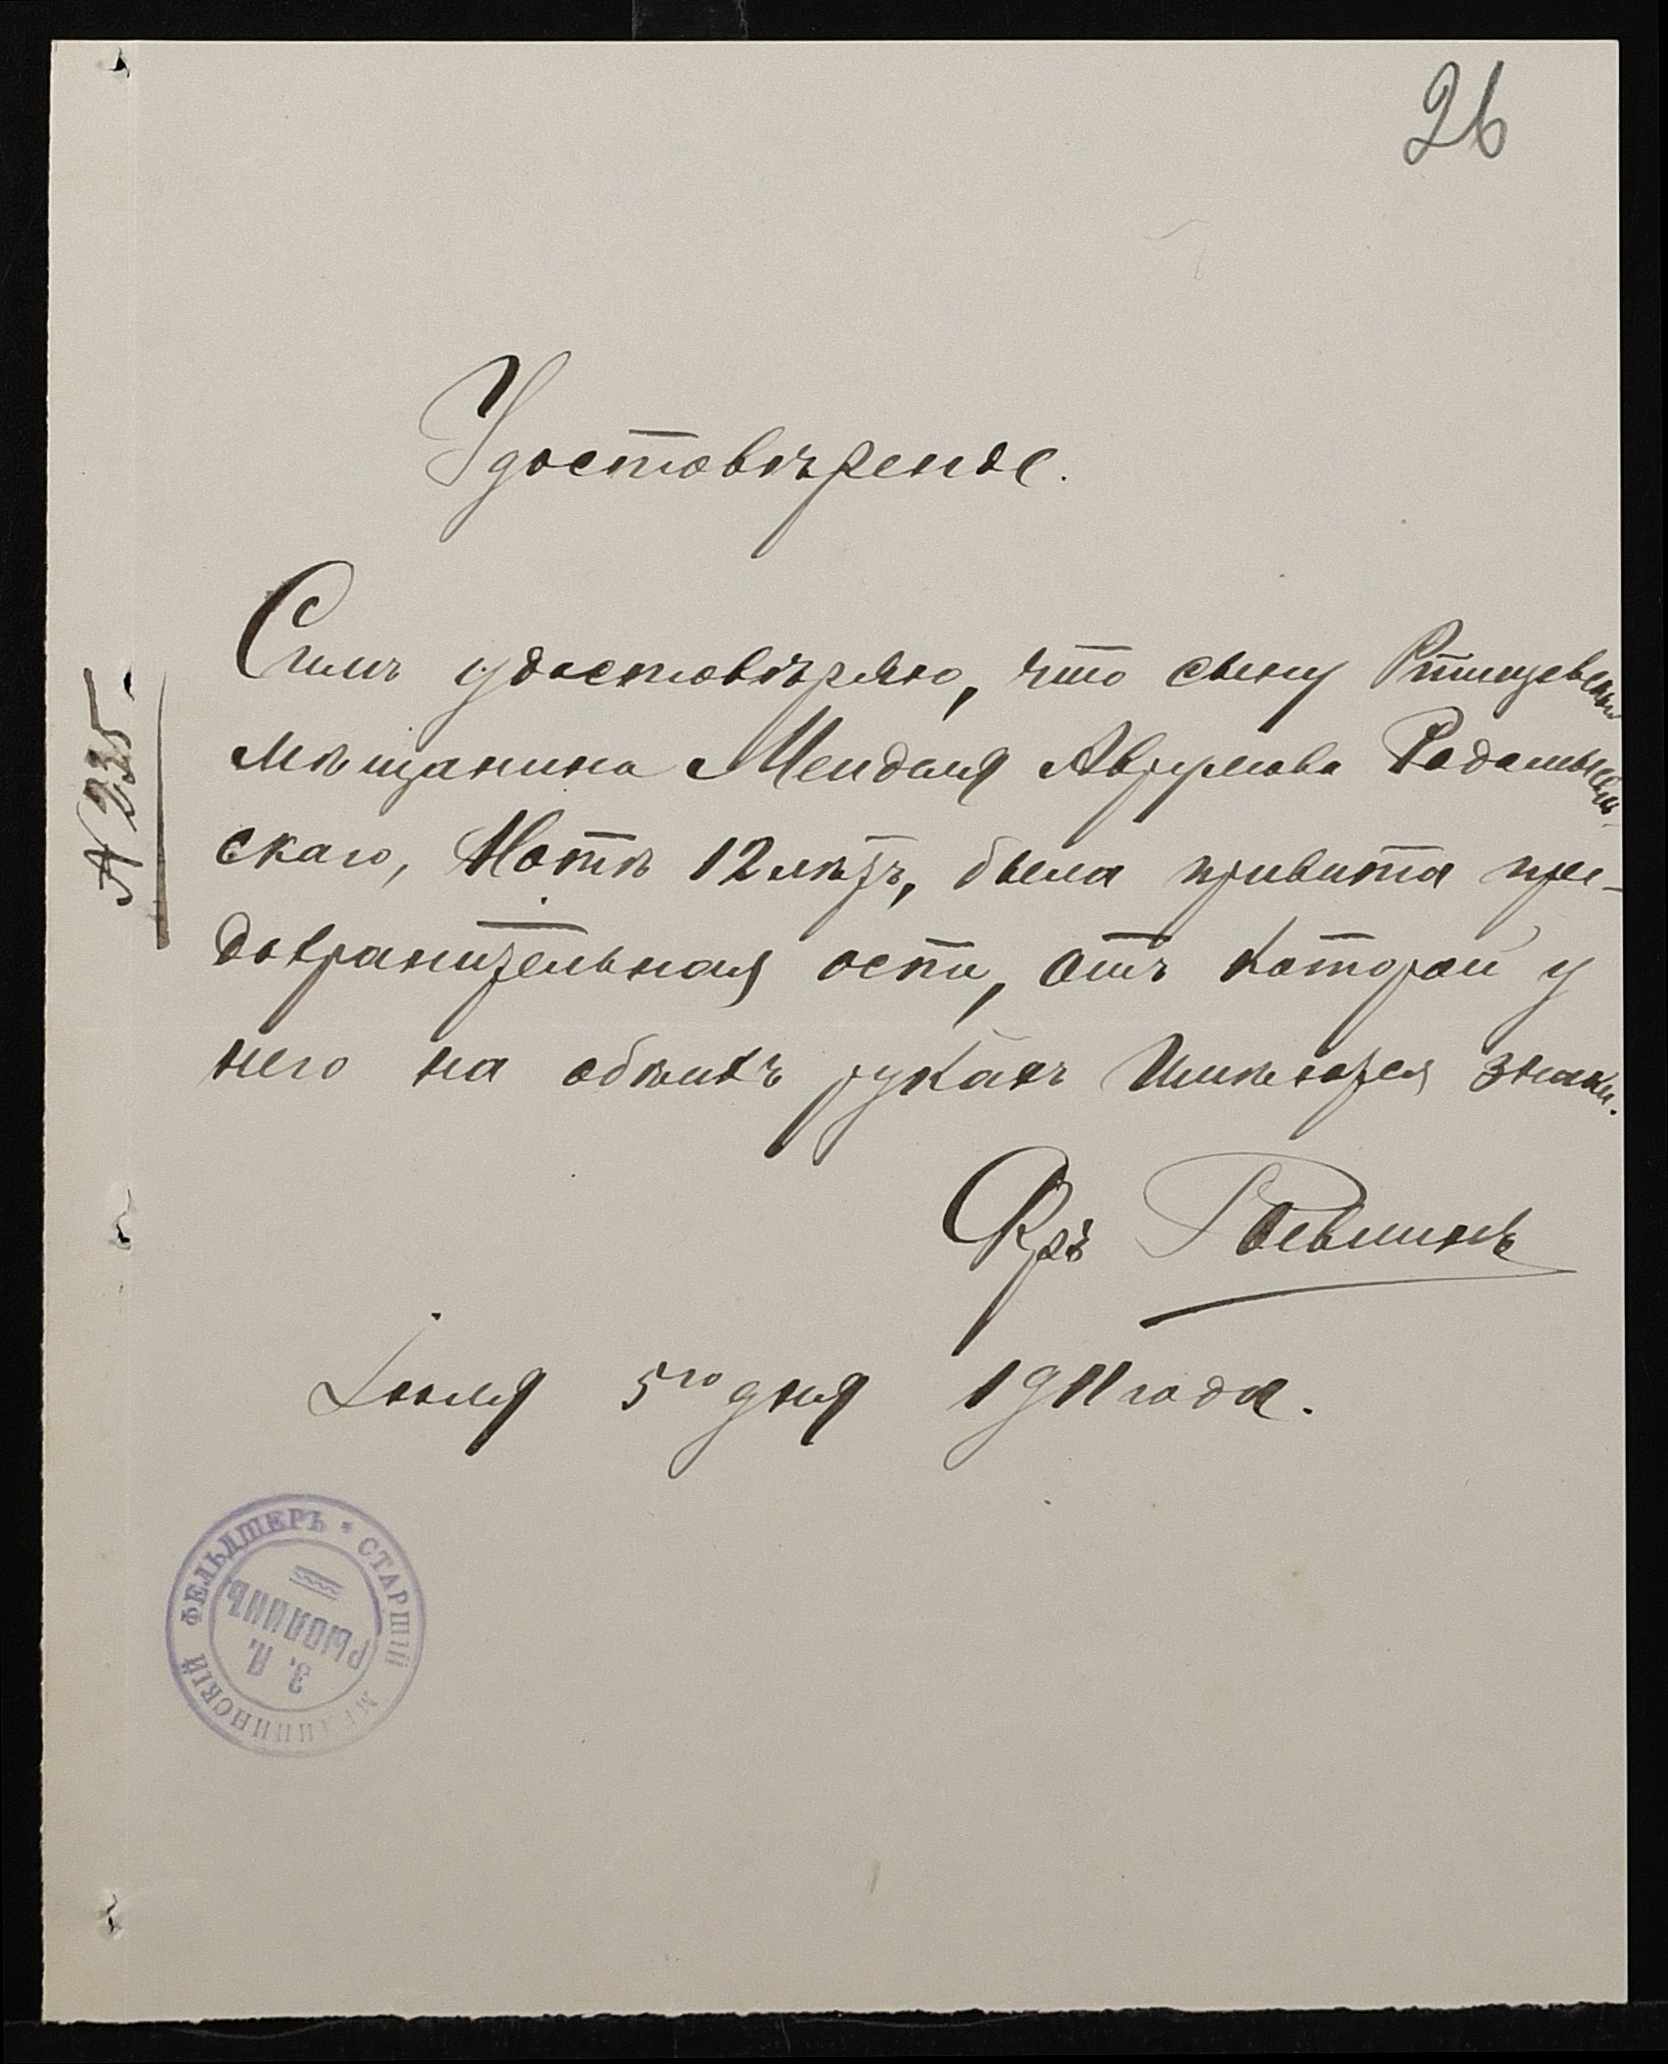 26
Удостовѣреніе.
Симъ удостовѣряю, что сыну Ржищевскаго
мѣщанина Менделя Аврумова Радомысль-
скаго, Мотѣ 12 лѣтъ, была привита пре-
дохранительная оспа, отъ которой у
него на обѣихъ рукахъ имѣются знаки.
№ 235.
Іюля 5го дня 1911 года.
СТАРШІЙ МЕДИЦИНСКІЙ ФЕЛЬДШЕРЪ *